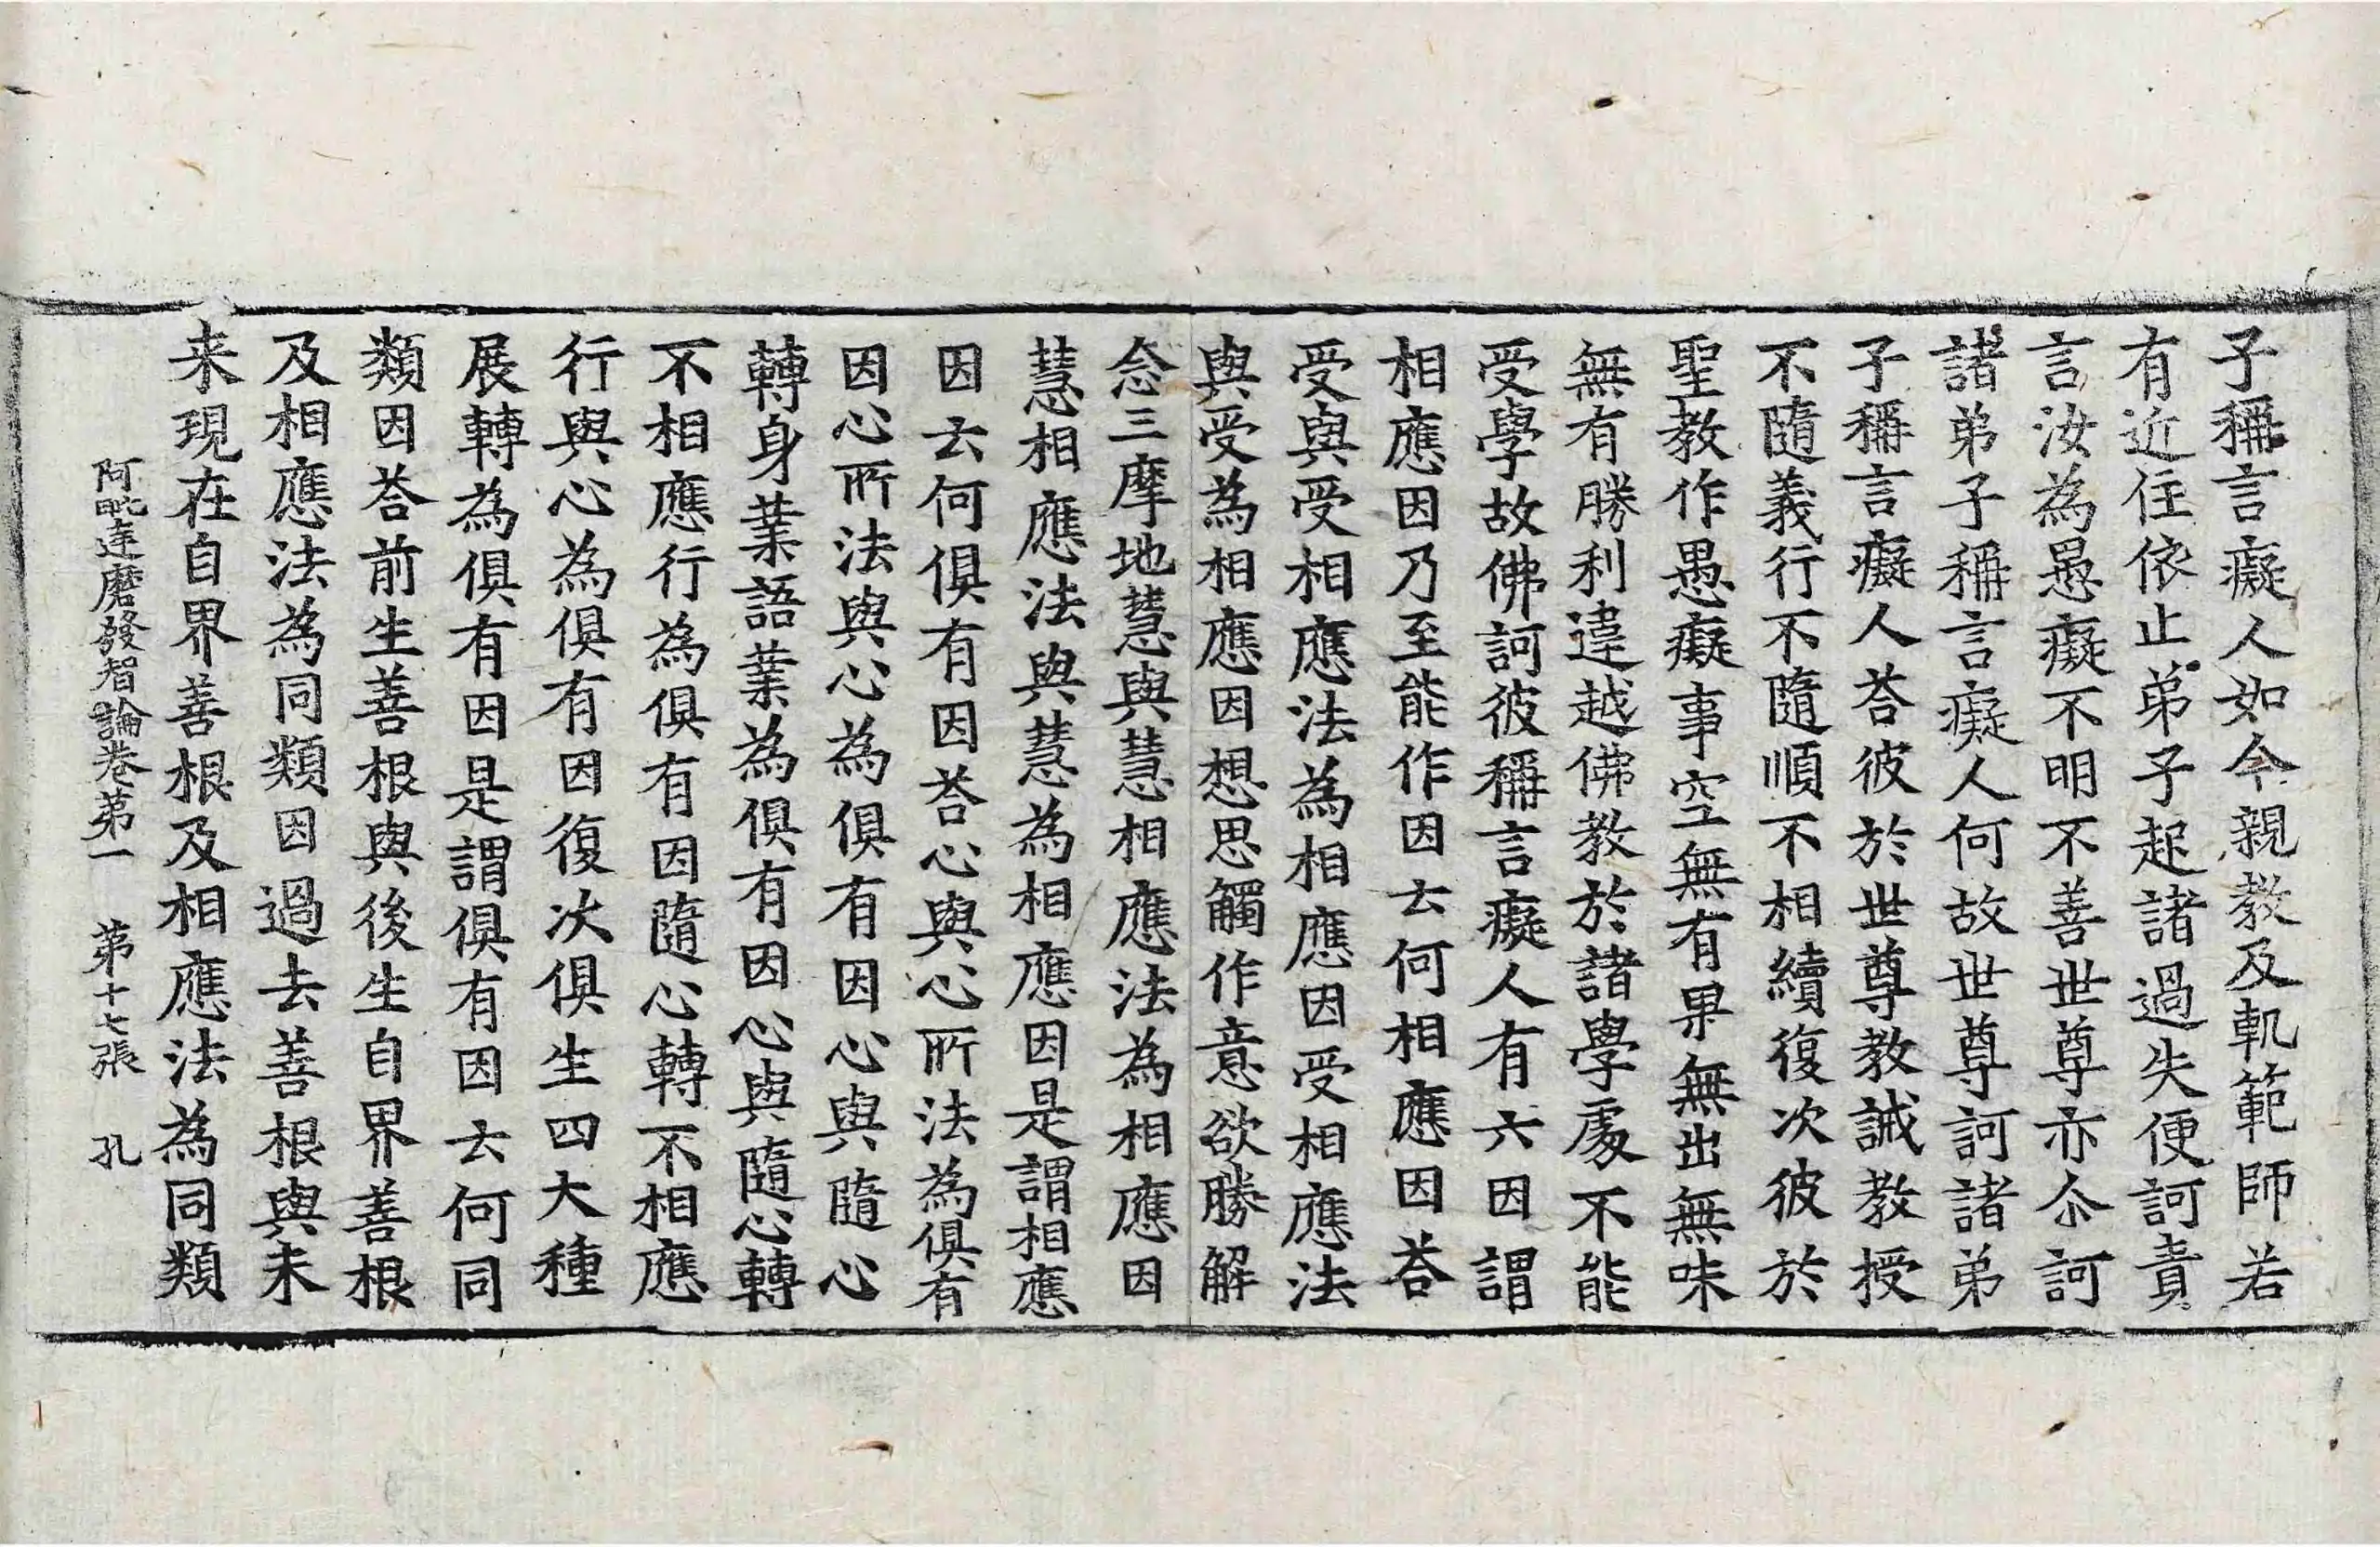 子稱言癡人如今親教及軌範師若
有近住依止弟子起諸過失便訶責
言汝為愚癡不明不善世尊亦尒訶
諸弟子稱言癡人何故世尊訶諸弟
子稱言癡人荅彼於世尊教誡教授
不隨義行不隨順不相續復次彼於
聖教作愚癡事空無有果無出無味
無有勝利違越佛教於諸學處不能
受學故佛訶彼稱言癡人有六因謂
相應因乃至能作因云何相應因荅
受與受相應法為相應因受相應法
與受為相應因想思觸作意欲勝解
念三摩地慧與慧相應法為相應因
慧相應法與慧為相應因是謂相應
因云何俱有因荅心與心所法為俱有
因心所法與心為俱有因心與隨心
轉身業語業為俱有因心與隨心轉
不相應行為俱有因隨心轉不相應
行與心為俱有因復次俱生四大種
展轉為俱有因是謂俱有因云何同
類因荅前生善根與後生自界善根
及相應法為同類因過去善根與未
来現在自界善根及相應法為同類
阿毗達磨發智論卷第一　第十七張　孔